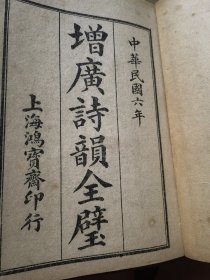 中華民國六年
增廣詩韻全璧
上海鴻寶齋印行